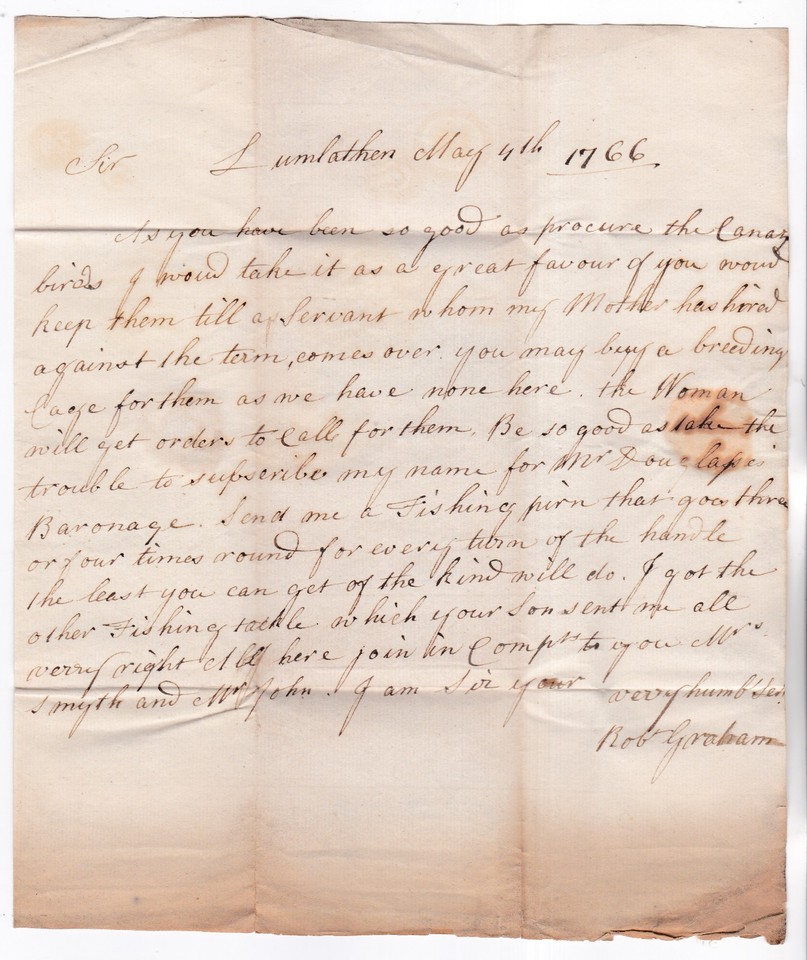 Sir Lumlathen May 4th 1766.
As you have been so good as procure the Canary
birds I woud take it as a great favour if you woud
keep them till a Servant whom my Mother has hired
against the term, comes over. you may buy a breeding
Cage for them as we have none here. the Woman
will get orders to Call for them. Be so good as take the
trouble to subscribe my name for Mr Douglass's
Baronage. Send me a Fishing pirn that goes three
or four times round for every turn of the handle
the least you can get of the kind will do. I got the
other Fishing tackle which your Son sent me all
verry right All here join in Compts to you Mrs.
Smyth and Mr John. I am Sir your verry humb Ser.
Robt Graham